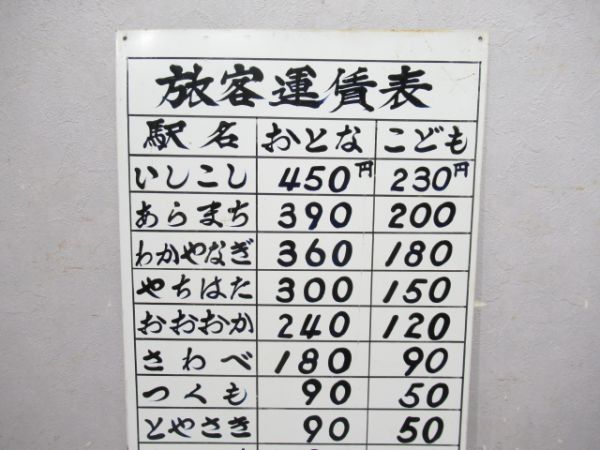 旅客運賃表
駅名 おとな こども
いしこし 450円 230円
あらまち 390 200
わかやなぎ 360 180
やちはた 300 150
おおおか 240 120
さわべ 180 90
つくも 90 50
とやさき 90 50